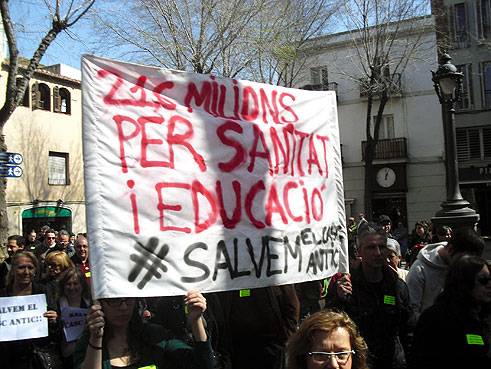 216 MILIONS
PER SANITAT
i EDUCACIÓ
#SALVEM EL CASC
ANTIC
SALVEM EL
CASC ANTIC!!